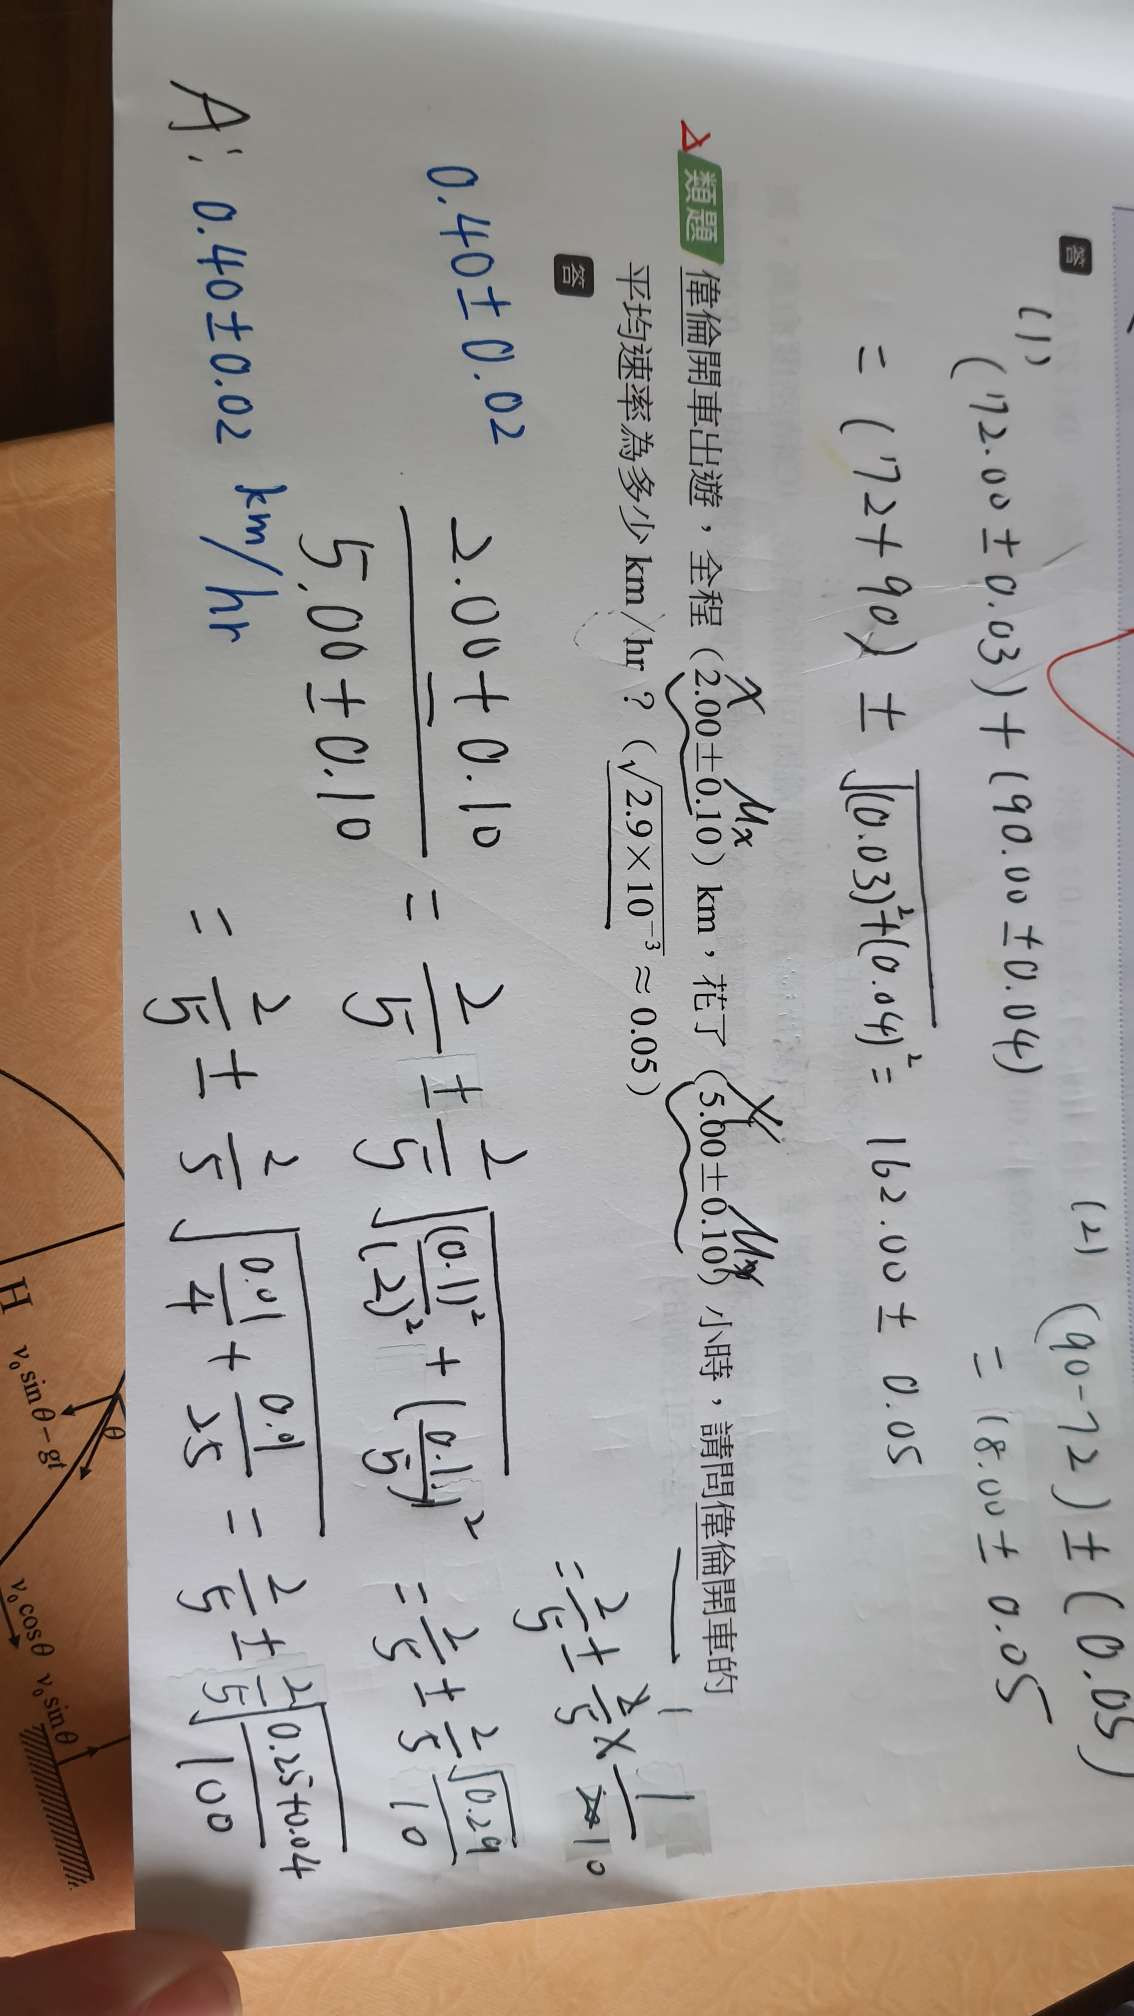 答
(1)
(72.00±0.03)+(90.00±0.04)
=(72+90)±√(0.03)²+(0.04)² = 162.00± 0.05
(2) (90-72)±(0.05)
= 18.00± 0.05
類題 偉倫開車出遊，全程（2.00±0.10）km，花了（5.00±0.10）小時，請問偉倫開車的
x μx y
平均速率為多少 km／hr？（√2.9×10⁻³ ≈ 0.05）
答
0.40±0.02
2.00±0.10 / 5.00±0.10 = 2/5 ± 2/5 √(0.1)²/(2)² + (0.1/5)² = 2/5 ± 2/5 √0.29/10
= 2/5 ± 2/5 × 1/10
= 2/5 ± 2/5 √0.01/4 + 0.01/25 = 2/5 ± 2/5 √0.25+0.04/100
A: 0.40±0.02 km/hr
H
v₀sinθ−gt
θ
v₀cosθ
v₀sinθ